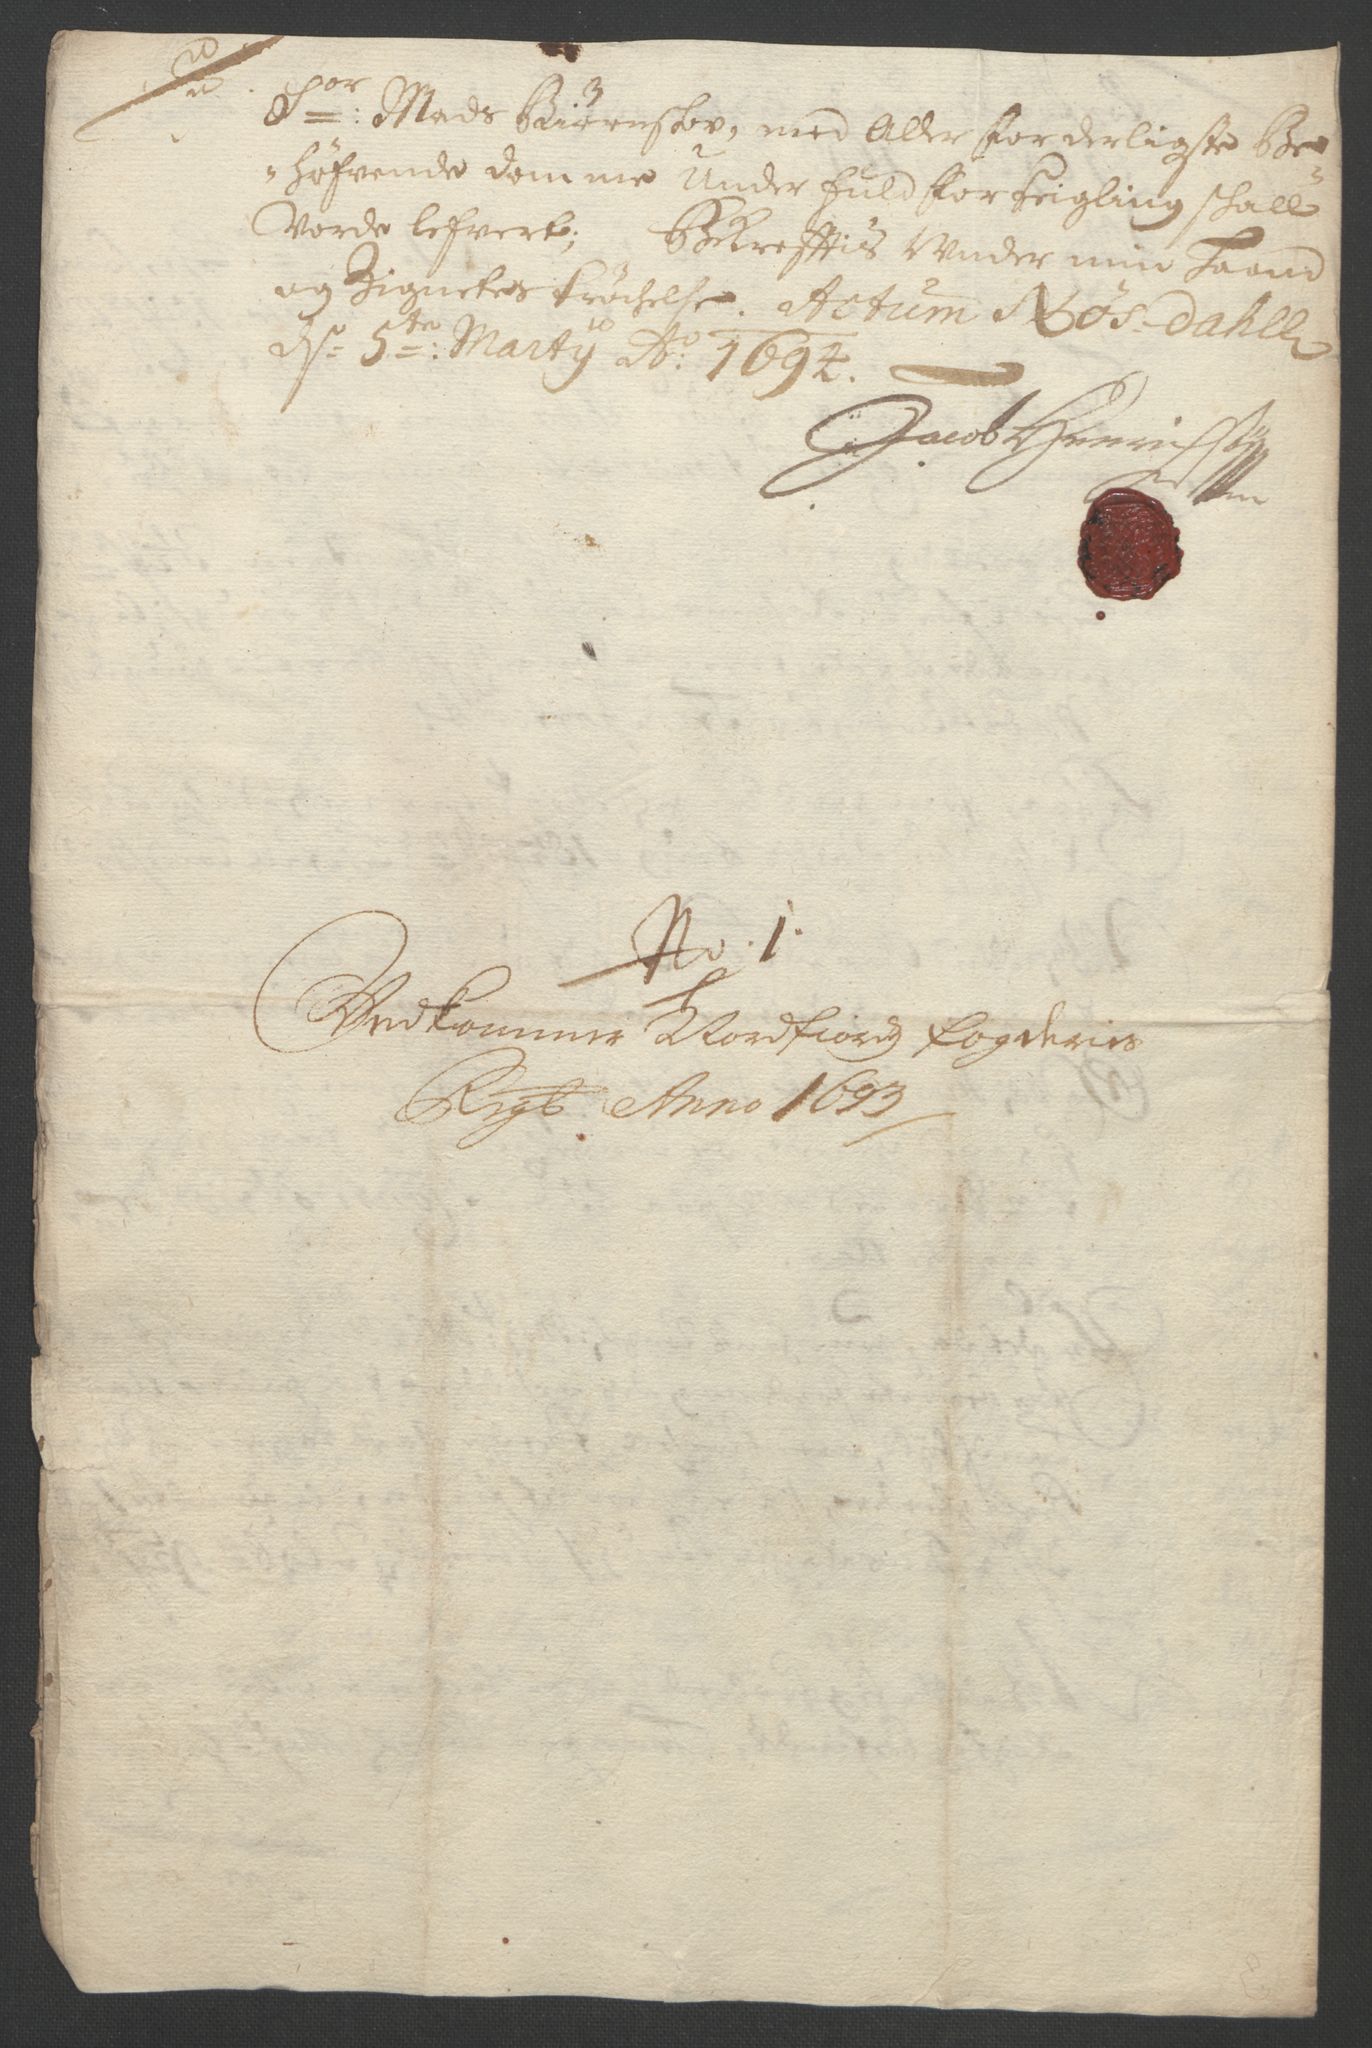 Sr: Mads Biørnskov, med Aller forderligste Be
høfvende domme Under fuld forseigling schall
Vorde lefvert; Bekrefftis Under min Haand
og Zignetes trøchelse. Actum Nøs-dahll
ds 5te: Marty Ao: 1694.
Jacob Henrichsen
No. 1.
Vedkommer Nordfiords fogderies
Regb Anno 1693